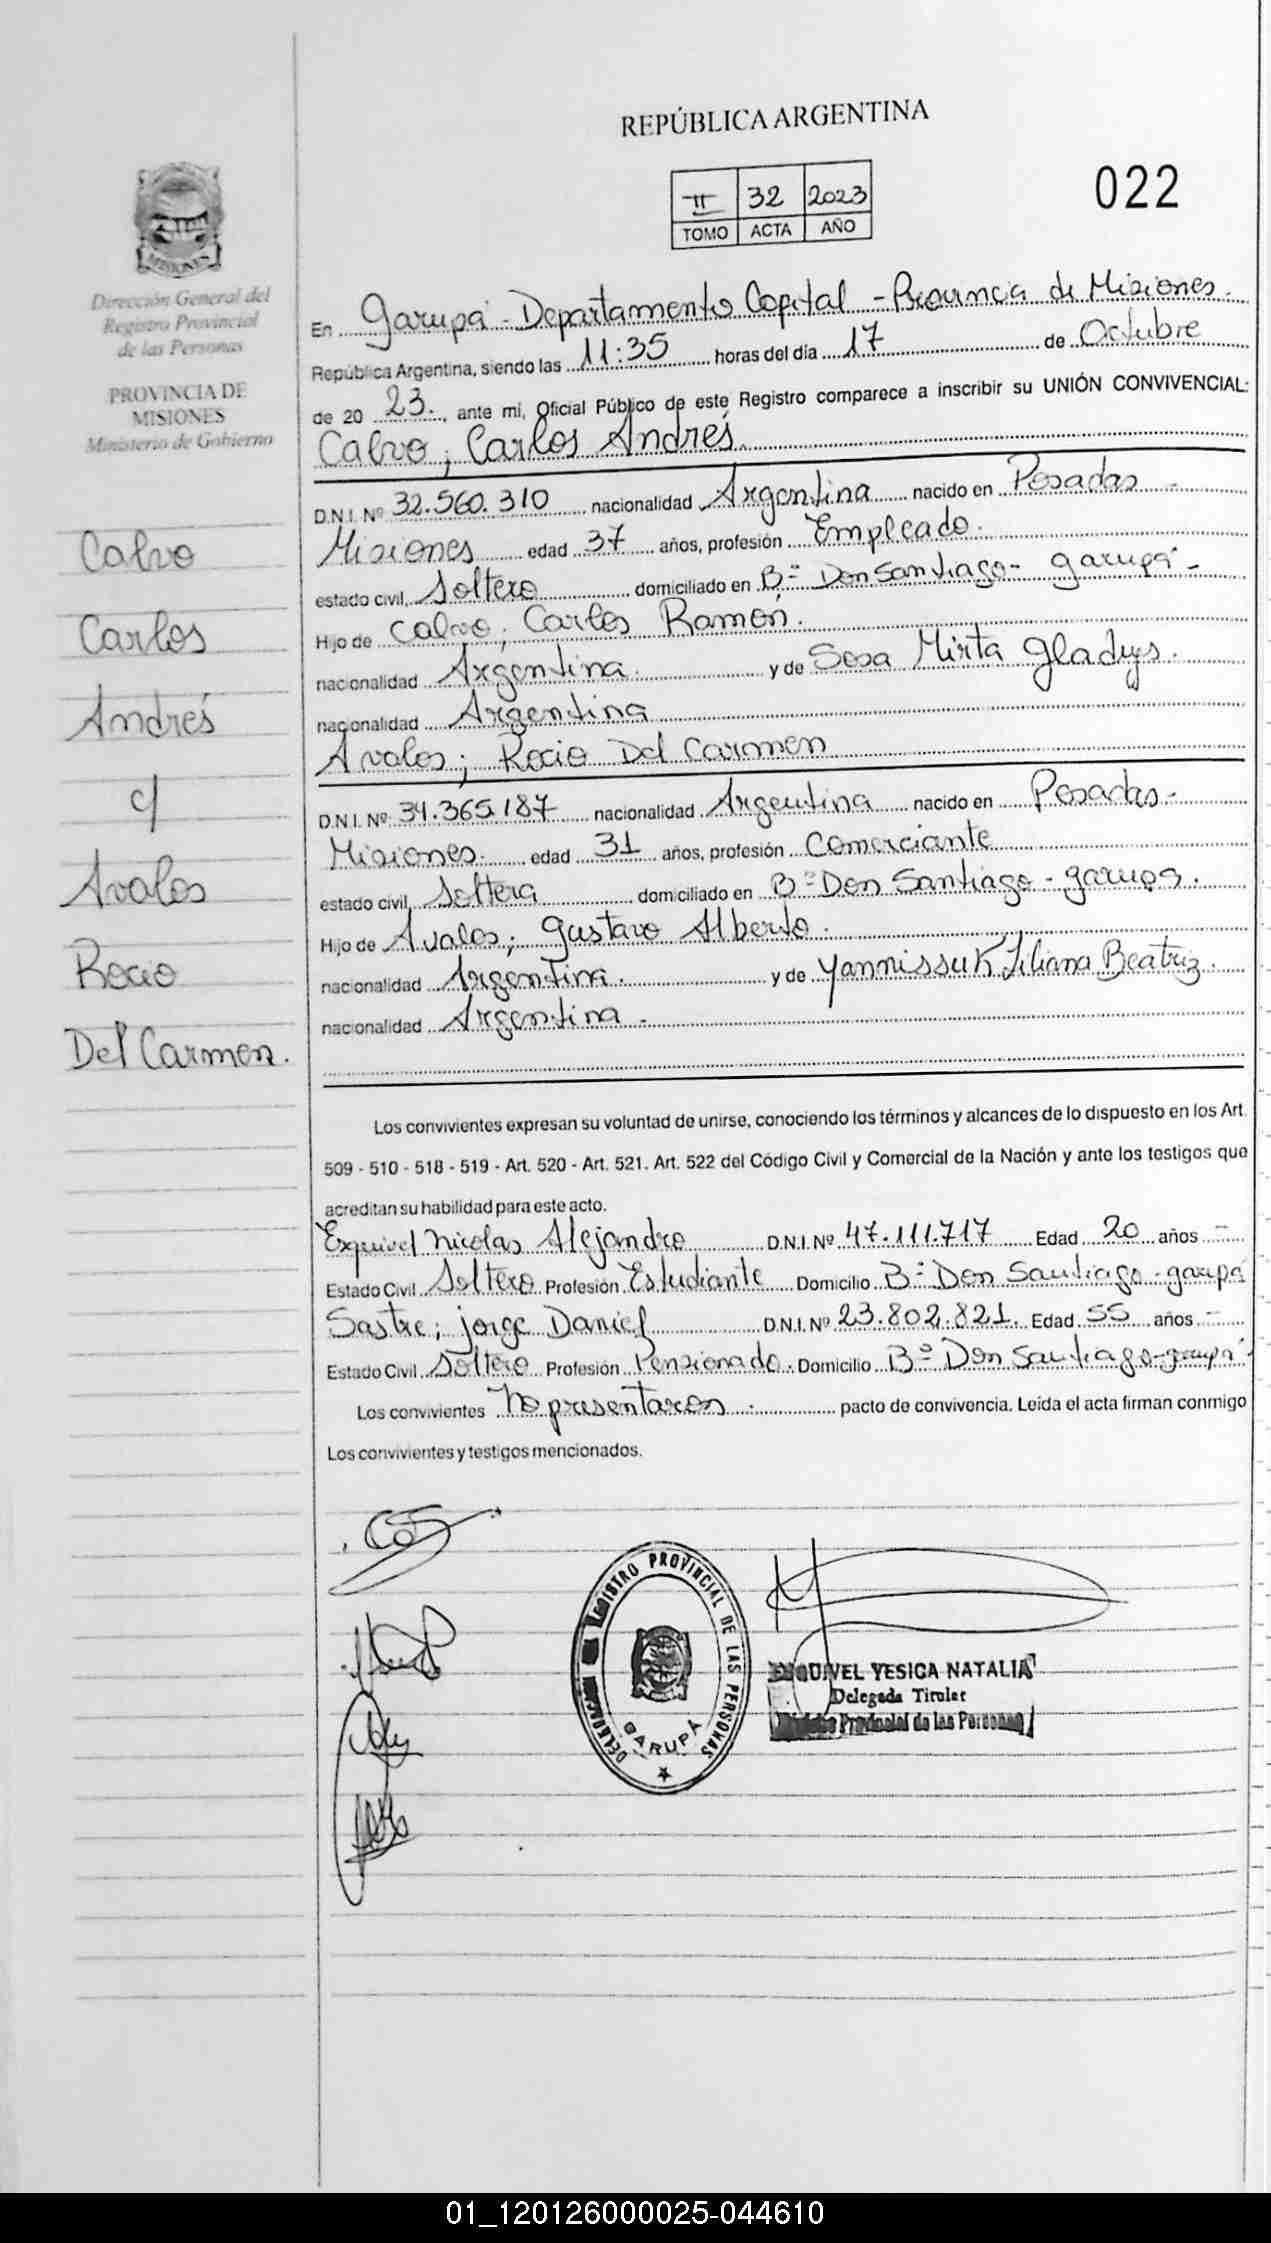 REPÚBLICA ARGENTINA
II 32 2023
TOMO ACTA AÑO
022
MISIONES
Dirección General del
Registro Provincial
de las Personas
PROVINCIA DE
MISIONES
Ministerio de Gobierno
Calvo
Carlos
Andrés
c/
Avalos
Rocio
Del Carmen.
En Garupá - Departamento Capital - Provincia de Misiones.
República Argentina, siendo las 11:35 horas del día 17 de Octubre
de 20 23., ante mi, Oficial Público de este Registro comparece a inscribir su UNIÓN CONVIVENCIAL:
Calvo, Carlos Andrés.
D.N.I. Nº 32.560.310 nacionalidad Argentina nacido en Posadas -
Misiones edad 37 años, profesión Empleado.
estado civil, Soltero domiciliado en Bº Don Santiago - Garupá -
Hijo de Calvo, Carlos Ramon.
nacionalidad Argentina. y de Sosa Mirta Gladys.
nacionalidad Argentina
Avalos; Rocio Del Carmen
D.N.I. Nº 34.365.187 nacionalidad Argentina nacido en Posadas -
Misiones. edad 31 años, profesión Comerciante
estado civil, Soltera domiciliado en Bº Don Santiago - Garupá.
Hijo de Avalos; Gustavo Alberto.
nacionalidad Argentina. y de Yannissuk Liliana Beatriz.
nacionalidad Argentina -
Los convivientes expresan su voluntad de unirse, conociendo los términos y alcances de lo dispuesto en los Art.
509 - 510 - 518 - 519 - Art. 520 - Art. 521. Art. 522 del Código Civil y Comercial de la Nación y ante los testigos que
acreditan su habilidad para este acto.
Esquivel Nicolas Alejandro D.N.I. Nº 47.111.717 Edad 20 años -
Estado Civil Soltero Profesión Estudiante Domicilio Bº Don Santiago - Garupá
Sastre; Jorge Daniel D.N.I. Nº 23.802.821. Edad 55 años -
Estado Civil Soltero Profesión Pensionado. Domicilio Bº Don Santiago - Garupá
Los convivientes No presentaron. pacto de convivencia. Leída el acta firman conmigo
Los convivientes y testigos mencionados.
REGISTRO PROVINCIAL DE LAS PERSONAS
GARUPÁ
ESQUIVEL YESICA NATALIA
Delegada Titular
Registro Provincial de las Personas
01_120126000025-044610